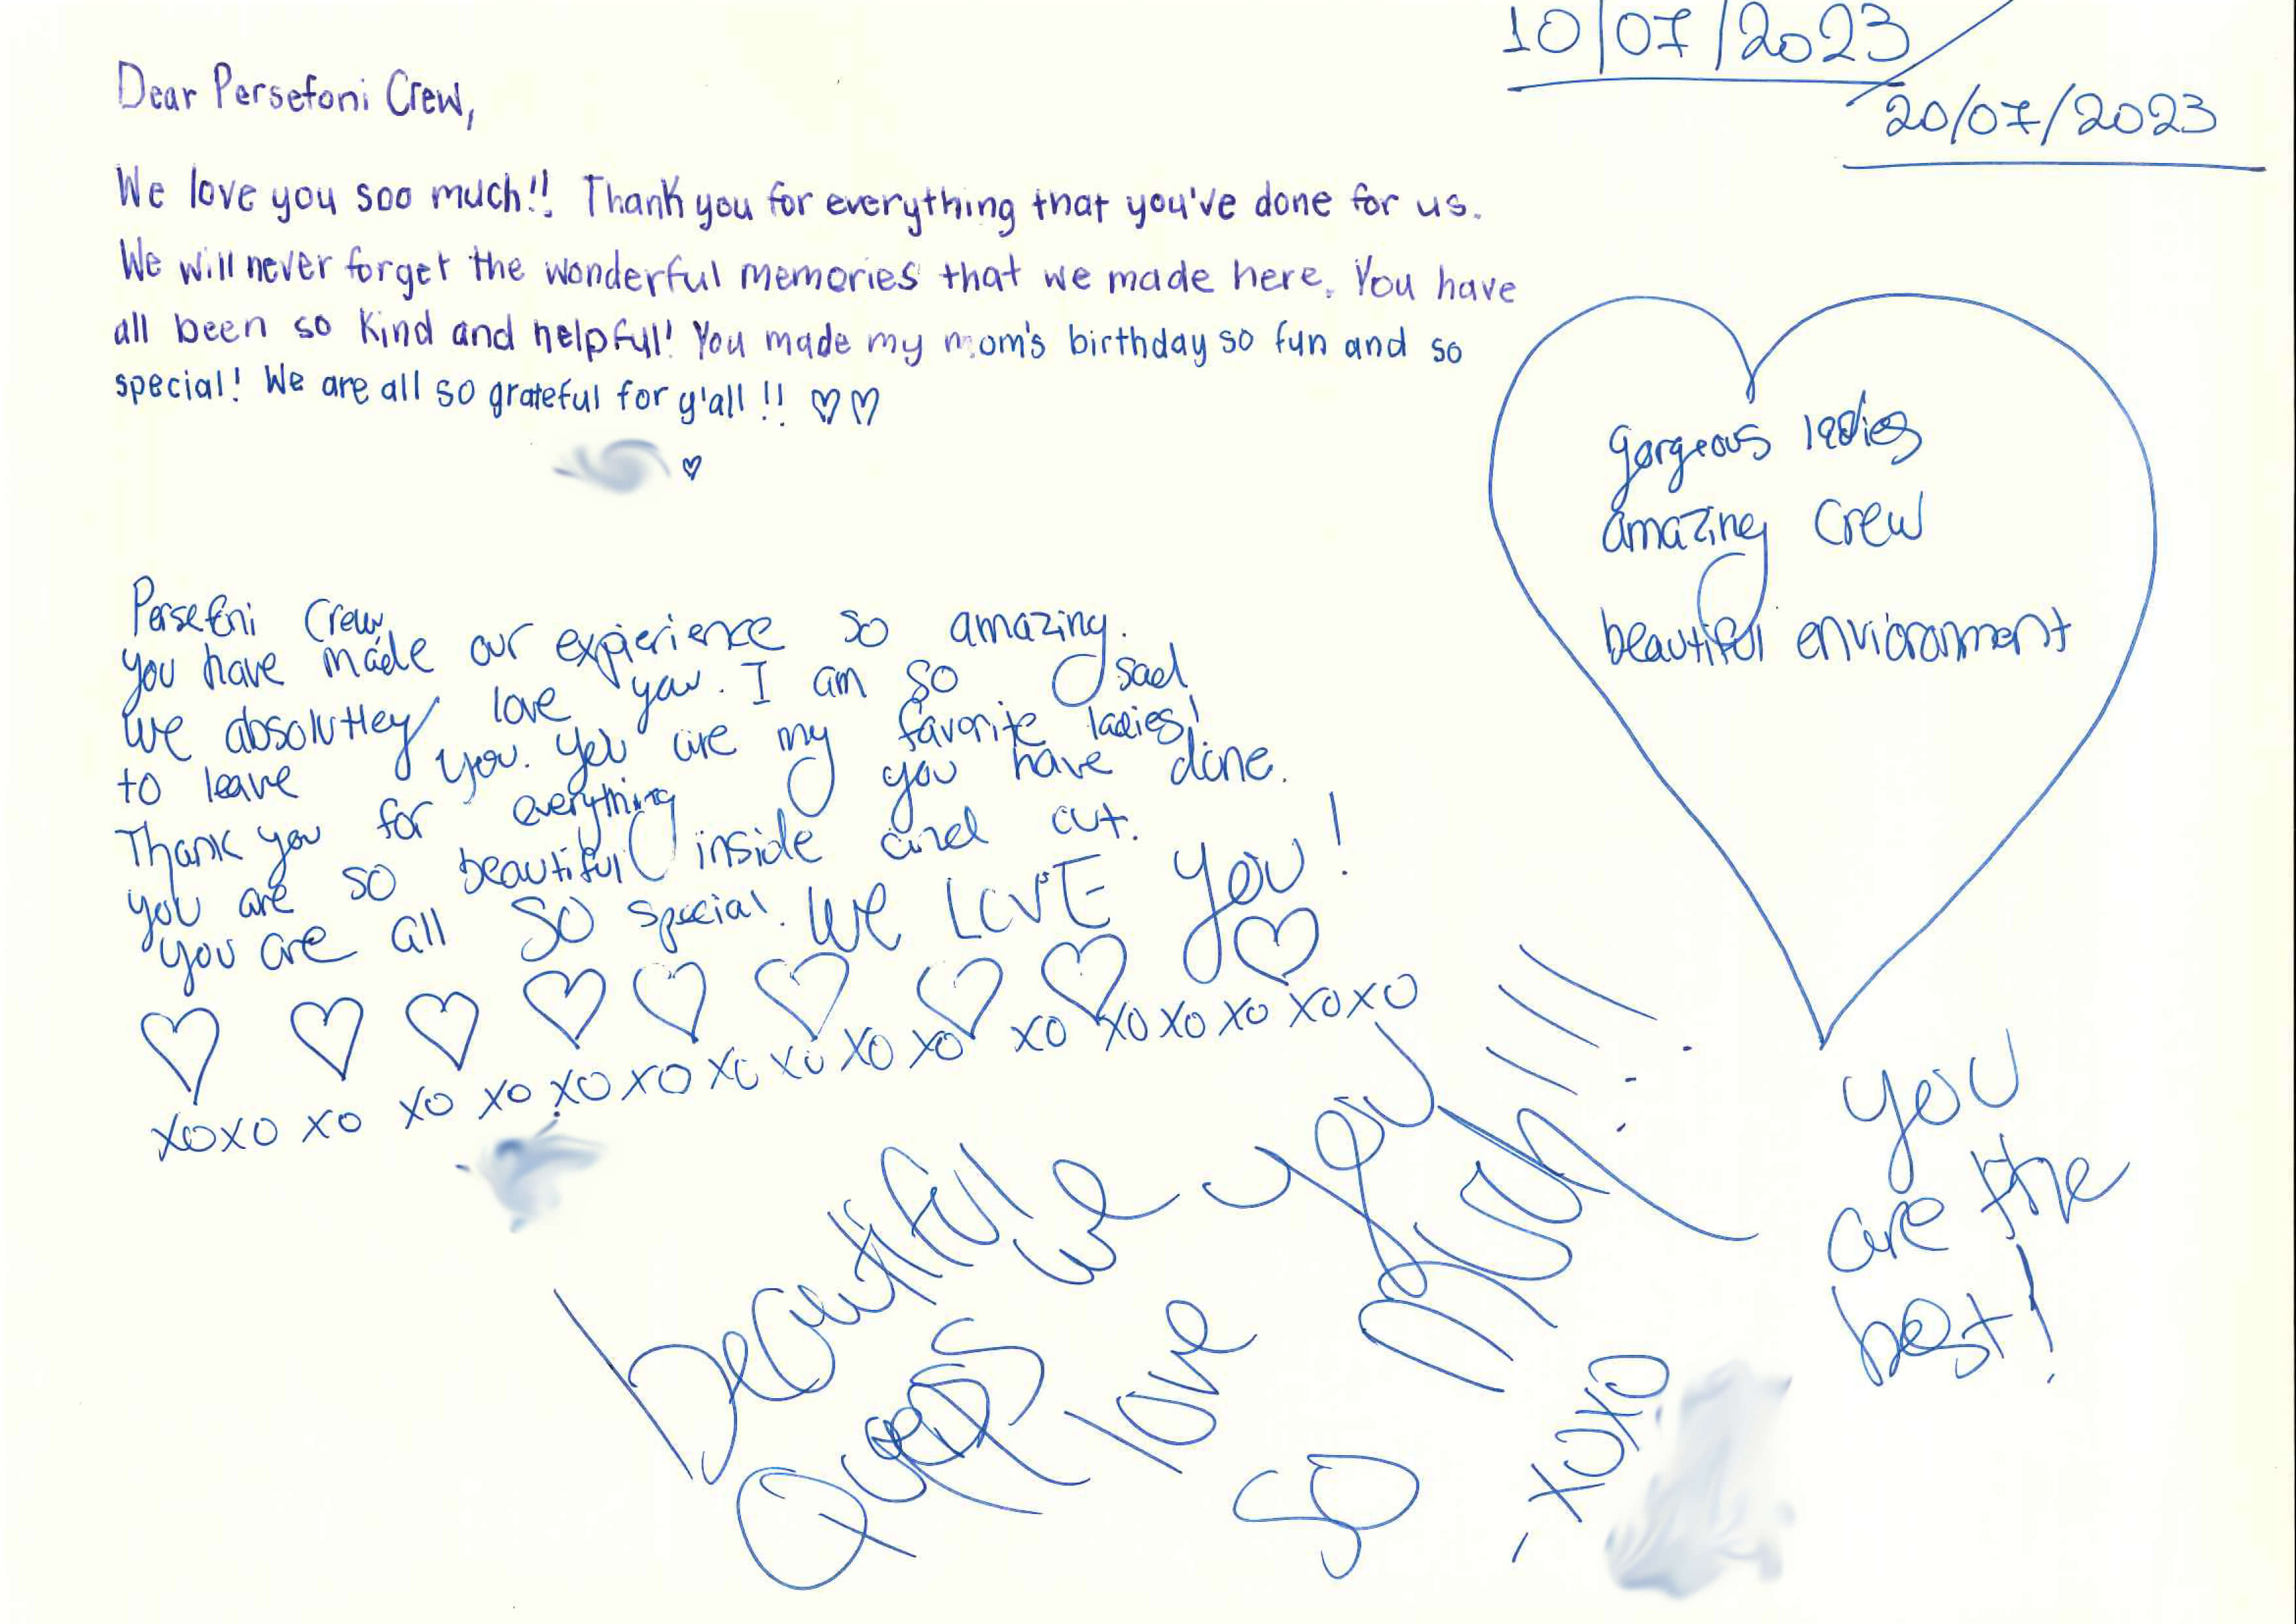 10/07/2023
20/07/2023
Dear Persefoni Crew,
We love you soo much!! Thank you for everything that you've done for us.
We will never forget the wonderful memories that we made here. You have
all been so kind and helpful! You made my mom's birthday so fun and so
special! We are all so grateful for y'all!! ♡♡
♡
gorgeous ladies
amazing crew
beautiful envioronment
Persefoni Crew,
you have made our expierience so amazing.
We absolutley love you. I am so sad
to leave you. You are my favorite ladies!
Thank you for everything you have done.
you are so beautiful inside and out.
you are all SO special. We LOVE you!
♡ ♡ ♡ ♡ ♡ ♡ ♡ ♡ ♡
XOXO XO XO XO XO XO XO XO XO XO XO XO XO XO XOXO
beautiful
Queens
we
love
you
so
much!!!
-XOXO
you
are the
best!